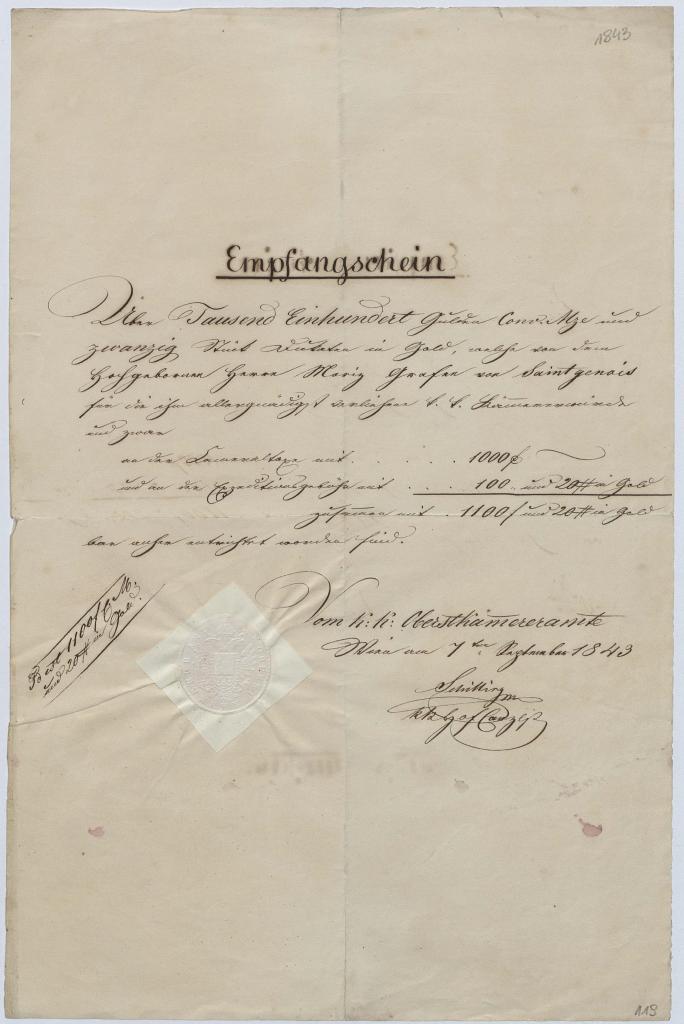 1843
Empfangschein
Über Tausend Einhundert Gulden Conv. Mze und
zwanzig Stück Dukaten in Gold, welche von dem
Hochgebornen Herrn Moriz Grafen von Saintgenois
für die ihm allergnädigst verliehene k. k. Kämmererwürde
und zwar
an der Kameraltaxe mit . . . . . . 1000 f
und an der Expeditionsgebühr mit . . . 100 „ und 20 # in Gold
zusammen mit . 1100 f und 20 # in Gold
bar anher entrichtet worden sind.
Vom k: k: Oberstkämmereramte
Wien am 7ten September 1843
kk Hof
1100 f C. M.
und 20 # in Gold.
119